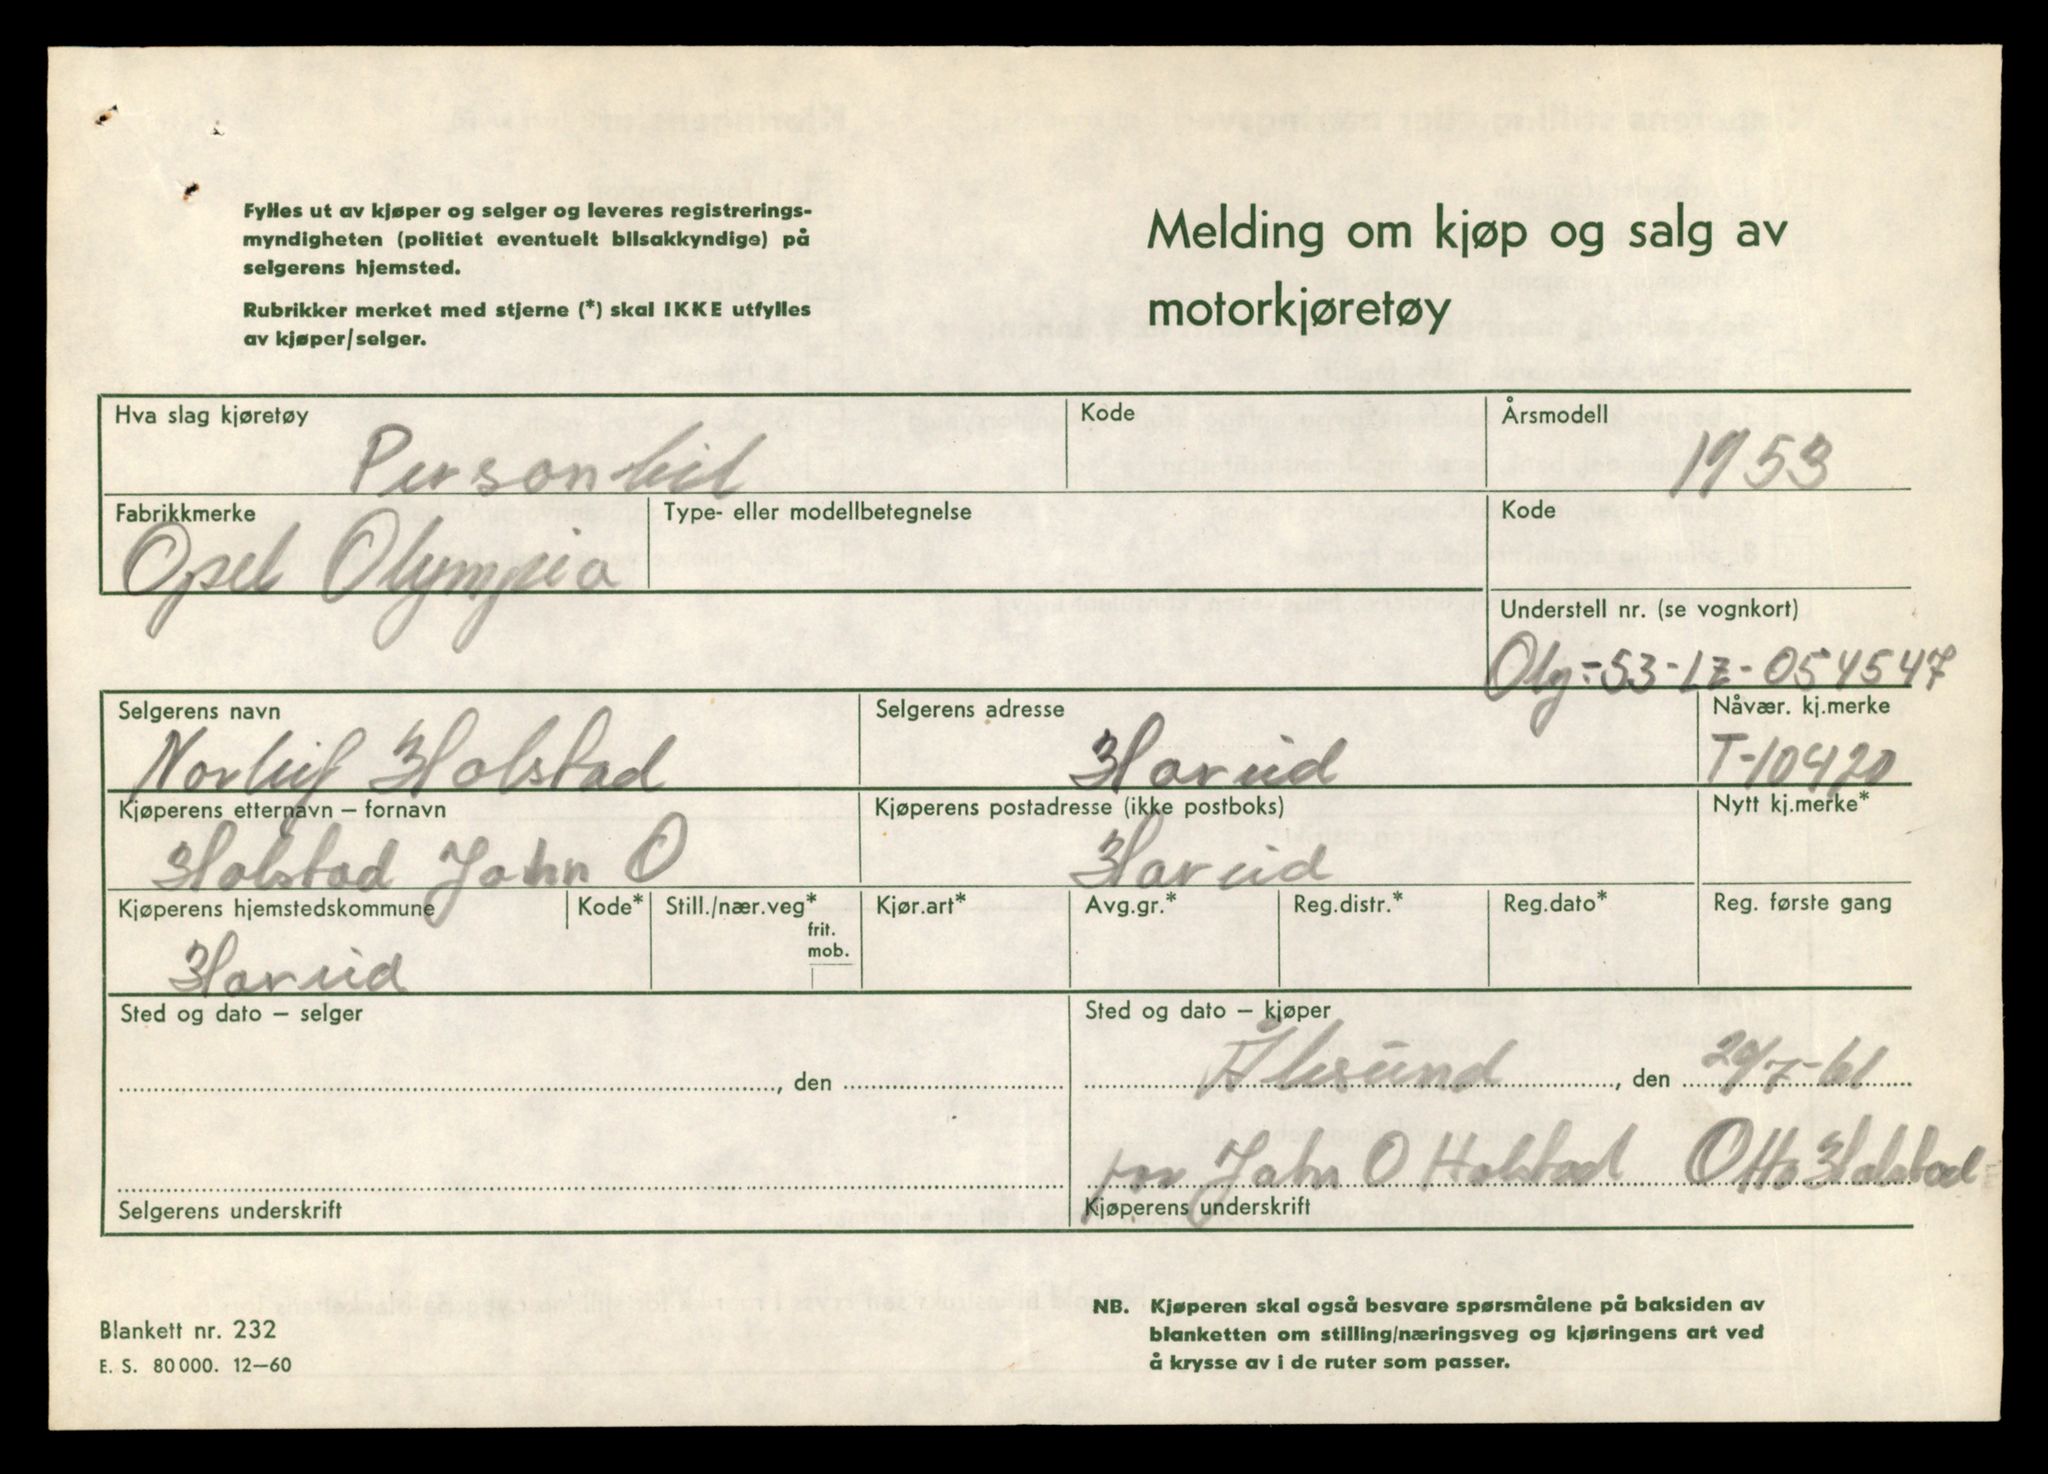 Fylles ut av kjøper og selger og leveres registrerings-
myndigheten (politiet eventuelt bilsakkyndige) på
selgerens hjemsted.
Rubrikker merket med stjerne (*) skal IKKE utfylles
av kjøper/selger.
Melding om kjøp og salg av
motorkjøretøy
Hva slag kjøretøy
Personbil
Kode
Årsmodell
1953
Fabrikkmerke
Opel Olympia
Type- eller modellbetegnelse
Kode
Understell nr. (se vognkort)
Oly-53-LZ-054547
Selgerens navn
Norleif Holstad
Selgerens adresse
Harøid
Nåvær. kj.merke
T-10420
Kjøperens etternavn – fornavn
Holstad John O
Kjøperens postadresse (ikke postboks)
Harøid
Nytt kj.merke*
Kjøperens hjemstedskommune
Harøid
Kode*
Still./nær.veg*
frit.
mob.
Kjør.art*
Avg.gr.*
Reg.distr.*
Reg.dato*
Reg. første gang
Sted og dato – selger
, den
Selgerens underskrift
Sted og dato – kjøper
Ålesund, den 29/7-61
for John O Holstad Otto Holstad
Kjøperens underskrift
Blankett nr. 232
E. S. 80000. 12–60
NB. Kjøperen skal også besvare spørsmålene på baksiden av
blanketten om stilling/næringsveg og kjøringens art ved
å krysse av i de ruter som passer.